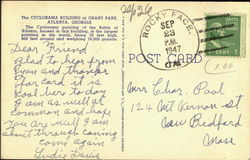 The CYCLORAMA BUILDING at GRANT PARK,
ATLANTA, GEORGIA
The Cyclorama painting of the Battle of
Atlanta, housed in this building, is the largest
painting in the world, being 50 feet high,
400 feet around and weighing 18,000 pounds.
ROCKY FACE,
SEP
23
PM
1947
GA.
POST CARD
1.00
Dear Friend
Glad to hear from
you and thanks
for card it is
cool here to day
I am as well as
common and hope
you are well I am
about through caning
come again
Mr Chas. Pool
124 Mt Vernon St
New Bedford
Mass